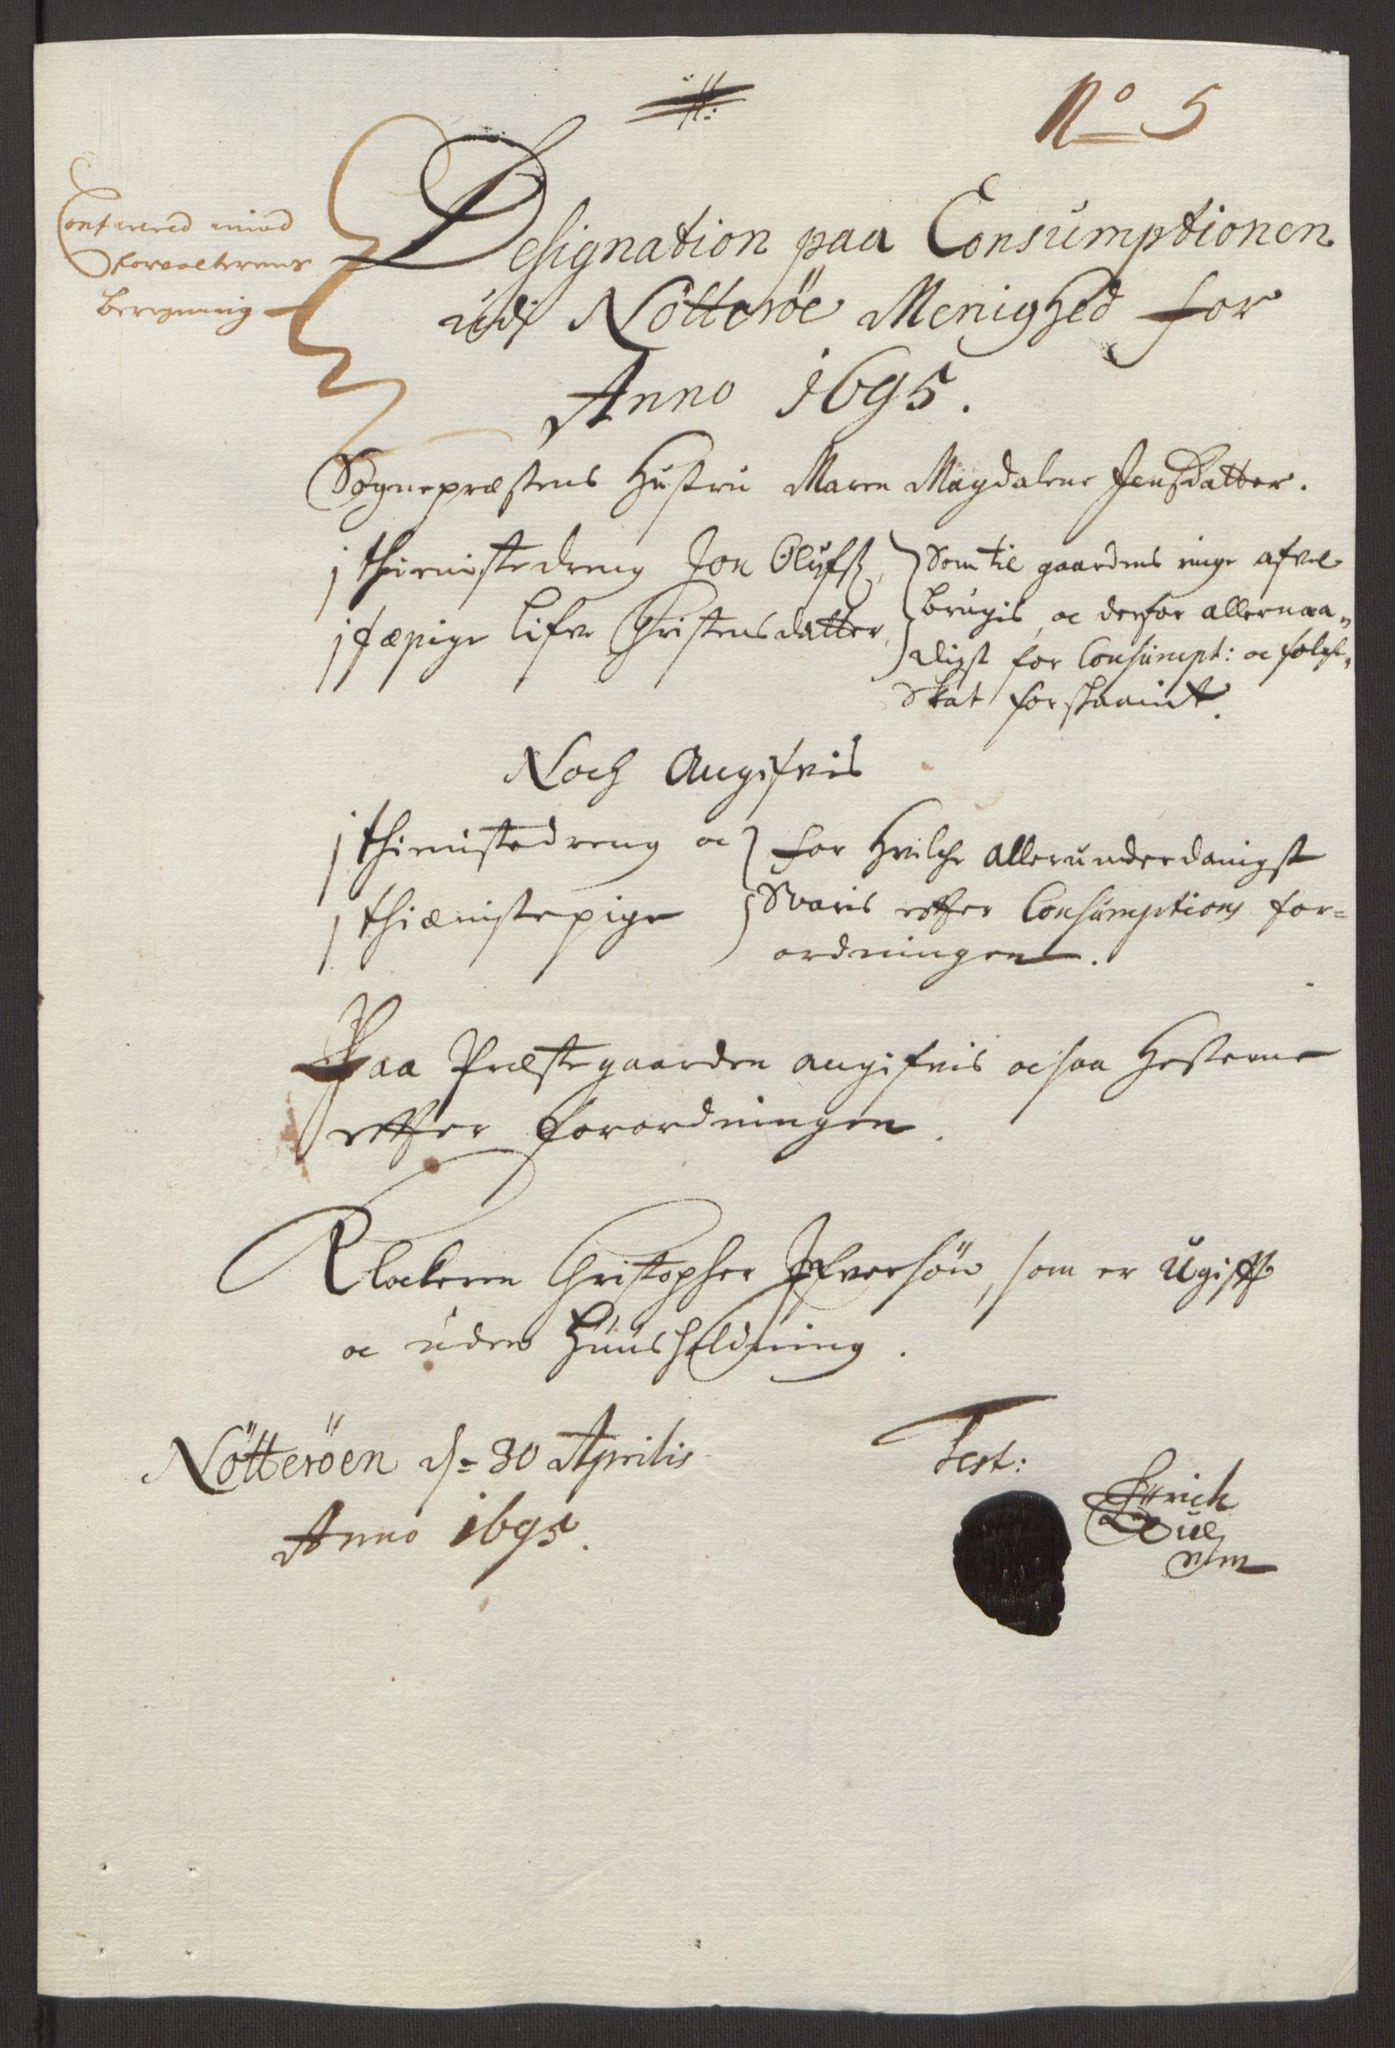 No 5
Conferered imod
Forvalterens
beregning
Designation paa Consumptionen
udj Nötteröe Menighed for
Anno 1695.
Sognepræstens Hustru Maren Magdalene Jensdatter.
j thienistedreng Jon Olufß,
j fæpige Lifve Christensdatter,
Som til gaardens ringe afvel
brugis, oc derfor allernaa=
digst for Consumpt: oc folche=
Skat forskaanit.
Noch Angifvis
j thienistedreng oc
j thiænistepige
for Hvilche allerunderdanigst
Svaris efter Consumptions for=
ordningen.
Paa Præstegaarden angifvis ochsaa Hesterne
efter forordningen.
Klockeren Christopher Ifversön, som er Ugift
oc uden Huusholdning.
Nötteröen d: 30 Aprilis
Anno 1695.
Test:
mm